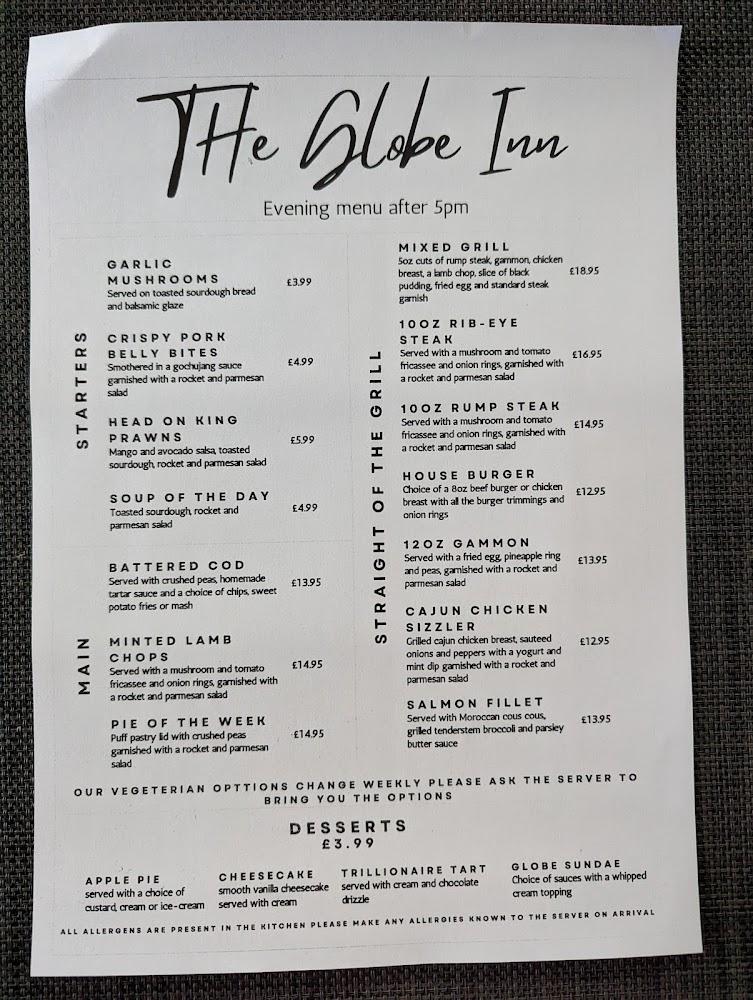 THe Globe Inn
Evening menu after 5pm
STARTERS
GARLIC
MUSHROOMS
£3.99
Served on toasted sourdough bread
and balsamic glaze
CRISPY PORK
BELLY BITES
£4.99
Smothered in a gochujang sauce
garnished with a rocket and parmesan
salad
HEAD ON KING
PRAWNS
£5.99
Mango and avocado salsa, toasted
sourdough, rocket and parmesan salad
SOUP OF THE DAY
£4.99
Toasted sourdough, rocket and
parmesan salad
MAIN
BATTERED COD
£13.95
Served with crushed peas, homemade
tartar sauce and a choice of chips, sweet
potato fries or mash
MINTED LAMB
CHOPS
£14.95
Served with a mushroom and tomato
fricassee and onion rings, garnished with
a rocket and parmesan salad
PIE OF THE WEEK
£14.95
Puff pastry lid with crushed peas
garnished with a rocket and parmesan
salad
STRAIGHT OF THE GRILL
MIXED GRILL
£18.95
5oz cuts of rump steak, gammon, chicken
breast, a lamb chop, slice of black
pudding, fried egg and standard steak
garnish
10OZ RIB-EYE
STEAK
£16.95
Served with a mushroom and tomato
fricassee and onion rings, garnished with
a rocket and parmesan salad
10OZ RUMP STEAK
£14.95
Served with a mushroom and tomato
fricassee and onion rings, garnished with
a rocket and parmesan salad
HOUSE BURGER
£12.95
Choice of a 8oz beef burger or chicken
breast with all the burger trimmings and
onion rings
12OZ GAMMON
£13.95
Served with a fried egg, pineapple ring
and peas, garnished with a rocket and
parmesan salad
CAJUN CHICKEN
SIZZLER
£12.95
Grilled cajun chicken breast, sauteed
onions and peppers with a yogurt and
mint dip garnished with a rocket and
parmesan salad
SALMON FILLET
£13.95
Served with Moroccan cous cous,
grilled tenderstem broccoli and parsley
butter sauce
OUR VEGETERIAN OPTTIONS CHANGE WEEKLY PLEASE ASK THE SERVER TO
BRING YOU THE OPTIONS
DESSERTS
£3.99
APPLE PIE
served with a choice of
custard, cream or ice-cream
CHEESECAKE
smooth vanilla cheesecake
served with cream
TRILLIONAIRE TART
served with cream and chocolate
drizzle
GLOBE SUNDAE
Choice of sauces with a whipped
cream topping
ALL ALLERGENS ARE PRESENT IN THE KITCHEN PLEASE MAKE ANY ALLERGIES KNOWN TO THE SERVER ON ARRIVAL